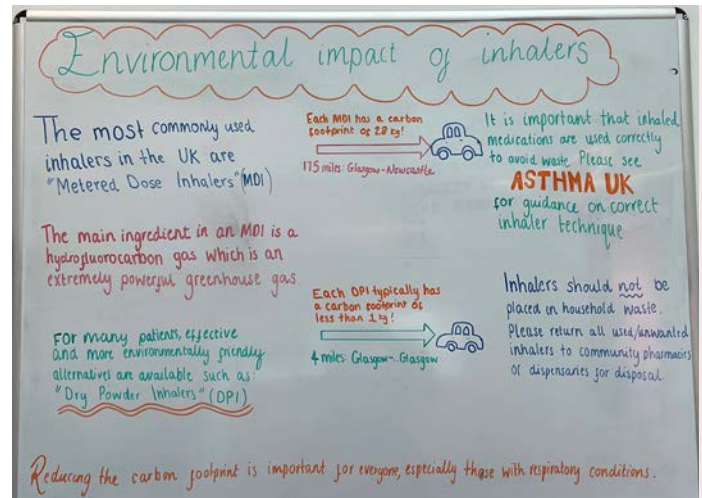 Environmental impact of inhalers
The most commonly used
inhalers in the UK are
"Metered Dose Inhalers" (MDI)
The main ingredient in an MDI is a
hydrofluorocarbon gas which is an
extremely powerful greenhouse gas.
For many patients, effective
and more environmentally friendly
alternatives are available such as:
"Dry Powder Inhalers" (DPI)
Each MDI has a carbon
footprint of 28 kg!
175 miles: Glasgow-Newcastle
Each DPI typically has
a carbon footprint of
less than 1 kg!
4 miles: Glasgow-Glasgow
It is important that inhaled
medications are used correctly
to avoid waste. Please see
ASTHMA UK
for guidance on correct
inhaler technique
Inhalers should not be
placed in household waste.
Please return all used/unwanted
inhalers to community pharmacies
or dispensaries for disposal.
Reducing the carbon footprint is important for everyone, especially those with respiratory conditions.